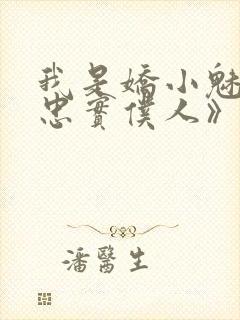 我是嬌小魅
忠實僕人》
潘醫生